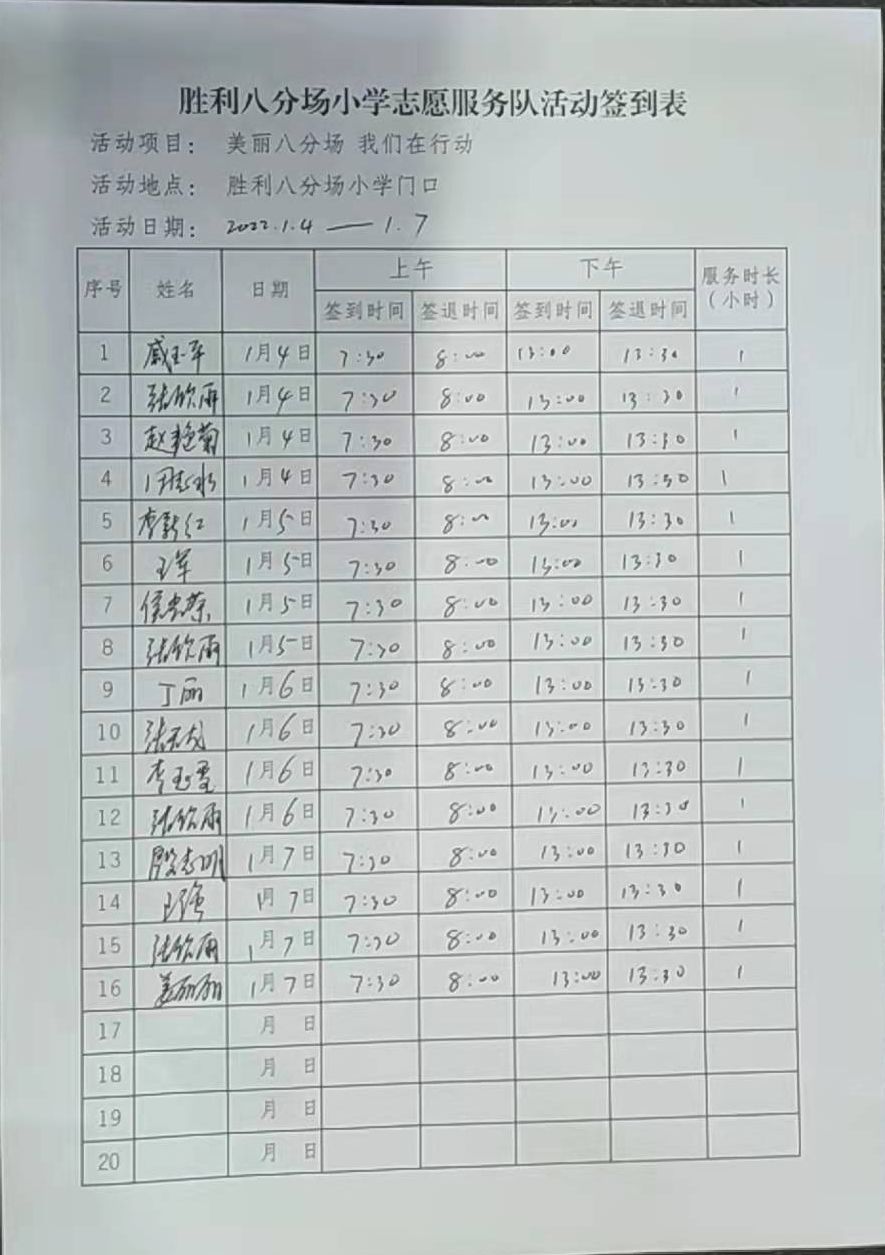 胜利八分场小学志愿服务队活动签到表
活动项目： 美丽八分场 我们在行动
活动地点： 胜利八分场小学门口
活动日期： 2022.1.4 — 1.7
序号 姓名 日期 上午 下午 服务时长（小时）
签到时间 签退时间 签到时间 签退时间
1 1月4日 7:30 8:00 13:00 13:30 1
2 张欣雨 1月4日 7:30 8:00 13:00 13:30 1
3 赵艳菊 1月4日 7:30 8:00 13:00 13:30 1
4 1月4日 7:30 8:00 13:00 13:30 1
5 1月5日 7:30 8:00 13:00 13:30 1
6 王军 1月5日 7:30 8:00 13:00 13:30 1
7 1月5日 7:30 8:00 13:00 13:30 1
8 张欣雨 1月5日 7:30 8:00 13:00 13:30 1
9 丁丽 1月6日 7:30 8:00 13:00 13:30 1
10 1月6日 7:30 8:00 13:00 13:30 1
11 1月6日 7:30 8:00 13:00 13:30 1
12 张欣雨 1月6日 7:30 8:00 13:00 13:30 1
13 殷志明 1月7日 7:30 8:00 13:00 13:30 1
14 王强 1月7日 7:30 8:00 13:00 13:30 1
15 张欣雨 1月7日 7:30 8:00 13:00 13:30 1
16 姜丽丽 1月7日 7:30 8:00 13:00 13:30 1
17 月 日
18 月 日
19 月 日
20 月 日